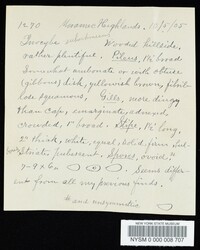 1270 Masonic Highlands, 10/5/05
Inocybe Wooded hillside,
rather plentiful. Pileus, 1½ broad
somewhat umbonate or with obtuse
(gibbous) disk, yellowish brown, fibril-
lose squamose. Gills, more dingy
than cap, emarginate, adnexed,
crowded, 1" broad. Stipe, 1½ long,
2" thick, white, equal, solid, firm, sub-
striate, pubescent. Spores, ovoid,
7-9 x 6. Seems differ-
ent from all my previous finds.
NEW YORK STATE MUSEUM
NYSM 0 000 008 707